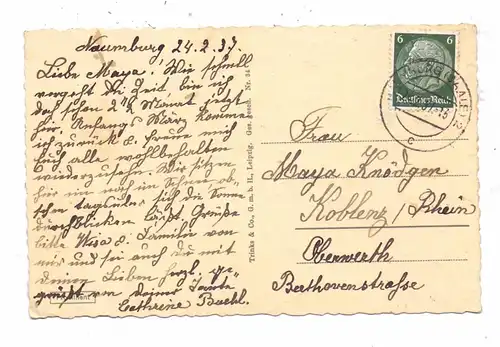 Naumburg 24.2.37.
Liebe Maya! Wie schnell
vergeht die Zeit, bin ich
doch schon 2½ Monat jetzt
hier. Anfangs März komme
ich zurück u. freue mich
Euch alle wohlbehalten
wiederzusehn. Wir sitzen
hier im noch im Schnee ob-
schon tagsüber sich die Sonne
durchblicken läßt. Grüße
bitte u. Familie von
mir und sei auch du mit
deinen Lieben herzl. ge-
grüßt von deiner Tante
Cathrine
Trinks & Co., G. m. b. H., Leipzig. Ges. gesch. Nr. 34
6 6
Deutsches Reich
c
Frau
Maya Knödgen
Koblenz/Rhein
Oberwerth
Beethovenstrasse